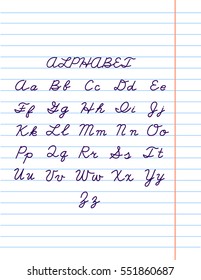 ALPHABET
Aa Bb Cc Dd Ee
Ff Gg Hh Ii Jj
Kk Ll Mm Nn Oo
Pp Qq Rr Ss Tt
Uu Vv Ww Xx Yy
Zz
shutterstock.com · 551860687